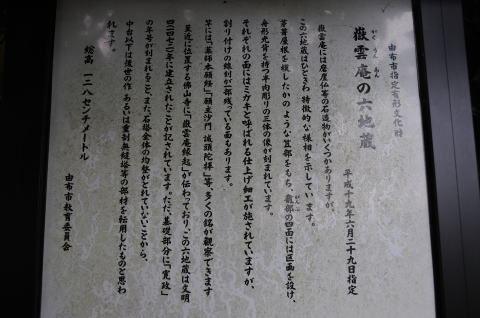 由布市指定有形文化財
がく うん あん
嶽雲庵の六地蔵
平成十九年六月二十九日指定
嶽雲庵には磨崖仏等の石造物がいくつかありますが、
この六地蔵はひときわ特徴的な様相を示しています。
茅葺屋根を模したかのような笠部をもち、龕部の四面には区画を設け、
舟形光背を持つ半肉彫りの三体の像が刻まれています。
それぞれの面にはミガキと呼ばれる仕上げ細工が施されていますが、
割り付けの線刻が一部残っている面もあります。
竿には、「薬師本願経」、「願主沙門 誠頭陀祥」等、多くの銘が観察できます
至近に位置する佛山寺に「嶽雲庵縁起」が伝わっており、この六地蔵は文明
四(一四七二)年に建立されたことが記されています。ただ、基礎部分に「寛政」
の年号が刻まれること、また石塔全体の均整がとれていないことから、
中台以下は後世の作 あるいは重制無縫塔等の部材を転用したものと思わ
れます。
総高 一三八センチメートル
由布市教育委員会